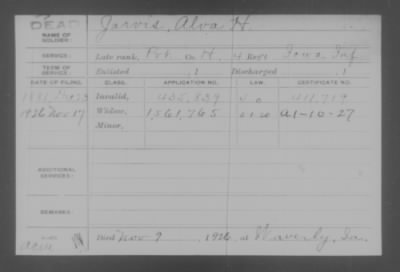 DEAD
NAME OF SOLDIER: Jarvis, Alva H.
SERVICE: Late rank, Pvt. Co. H, 4 Reg't Iowa Inf.
TERM OF SERVICE: Enlisted , 1 Discharged , 1
DATE OF FILING. CLASS. APPLICATION NO. LAW. CERTIFICATE NO.
Invalid, 435,839
1926 Nov 17 Widow, 1,561,765 A1-10-27
Minor,
ADDITIONAL SERVICES:
REMARKS:
Died Nov 9, 1926 at Waverly, Ia.